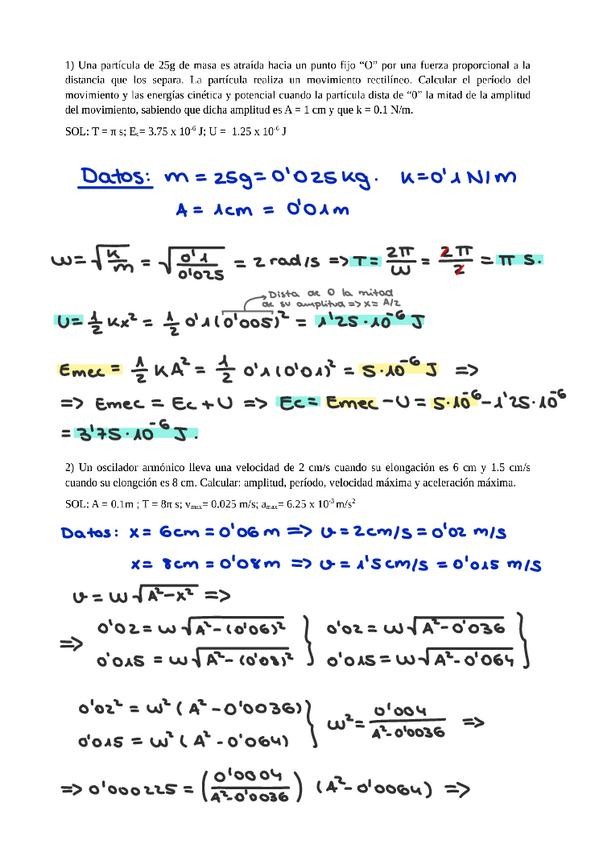 1) Una partícula de 25g de masa es atraída hacia un punto fijo “O” por una fuerza proporcional a la
distancia que los separa. La partícula realiza un movimiento rectilíneo. Calcular el período del
movimiento y las energías cinética y potencial cuando la partícula dista de “0” la mitad de la amplitud
del movimiento, sabiendo que dicha amplitud es A = 1 cm y que k = 0.1 N/m.
SOL: T = π s; Ec= 3.75 x 10⁻⁶ J; U = 1.25 x 10⁻⁶ J
Datos: m = 25g = 0'025 Kg. K=0'1 N/m
A = 1cm = 0'01m
ω = √(K/m) = √(0'1/0'025) = 2 rad/s => T = 2π/ω = 2π/2 = π s.
Dista de O la mitad
de su amplitud => x = A/2
U = 1/2 Kx² = 1/2 0'1(0'005)² = 1'25·10⁻⁶ J
Emec = 1/2 KA² = 1/2 0'1(0'01)² = 5·10⁻⁶ J =>
=> Emec = Ec + U => Ec = Emec - U = 5·10⁻⁶ - 1'25·10⁻⁶
= 3'75·10⁻⁶ J.
2) Un oscilador armónico lleva una velocidad de 2 cm/s cuando su elongación es 6 cm y 1.5 cm/s
cuando su elongción es 8 cm. Calcular: amplitud, período, velocidad máxima y aceleración máxima.
SOL: A = 0.1m ; T = 8π s; vmax= 0.025 m/s; amax= 6.25 x 10⁻³ m/s²
Datos: x = 6cm = 0'06m => v = 2cm/s = 0'02 m/s
x = 8cm = 0'08m => v = 1'5cm/s = 0'015 m/s
v = ω√(A²-x²) =>
=> 0'02 = ω√(A²-(0'06)²) } 0'02 = ω√(A²-0'036) }
0'015 = ω√(A²-(0'08)²) } 0'015 = ω√(A²-0'064) }
0'02² = ω² (A² - 0'0036) } ω² = 0'004/(A²-0'0036) =>
0'015 = ω² (A² - 0'0064) }
=> 0'000225 = (0'0004/(A²-0'0036)) (A²-0'0064) =>